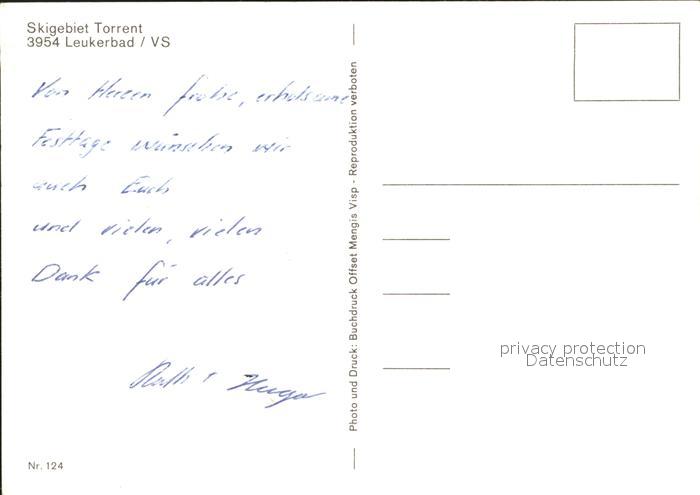 Skigebiet Torrent
3954 Leukerbad / VS
Von Herzen frohe, erholsame
Festtage wünschen wir
auch Euch
und vielen, vielen
Dank für alles
Ruth + Hugo
Nr. 124
Photo und Druck: Buchdruck Offset Mengis Visp - Reproduktion verboten
privacy protection
Datenschutz